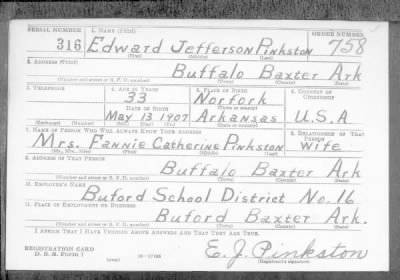 SERIAL NUMBER 1. NAME (Print) ORDER NUMBER
316 Edward Jefferson Pinkston 758
(First) (Middle) (Last)
2. ADDRESS (Print)
Buffalo Baxter Ark
(Number and street or R. F. D. number) (Town) (County) (State)
3. TELEPHONE 4. AGE IN YEARS 5. PLACE OF BIRTH 6. COUNTRY OF CITIZENSHIP
33 Norfork
DATE OF BIRTH (Town or county)
May 13 1907 Arkansas U.S.A
(Exchange) (Number) (Mo.) (Day) (Yr.) (State or country)
7. NAME OF PERSON WHO WILL ALWAYS KNOW YOUR ADDRESS 8. RELATIONSHIP OF THAT PERSON
Mrs. Fannie Catherine Pinkston Wife
(Mr., Mrs., Miss) (First) (Middle) (Last)
9. ADDRESS OF THAT PERSON
Buffalo Baxter Ark
(Number and street or R. F. D. number) (Town) (County) (State)
10. EMPLOYER'S NAME
Buford School District No. 16
11. PLACE OF EMPLOYMENT OR BUSINESS
Buford Baxter Ark.
(Number and street or R. F. D. number) (Town) (County) (State)
I AFFIRM THAT I HAVE VERIFIED ABOVE ANSWERS AND THAT THEY ARE TRUE.
REGISTRATION CARD E. J. Pinkston
D. S. S. Form 1 (over) (Registrant's signature)